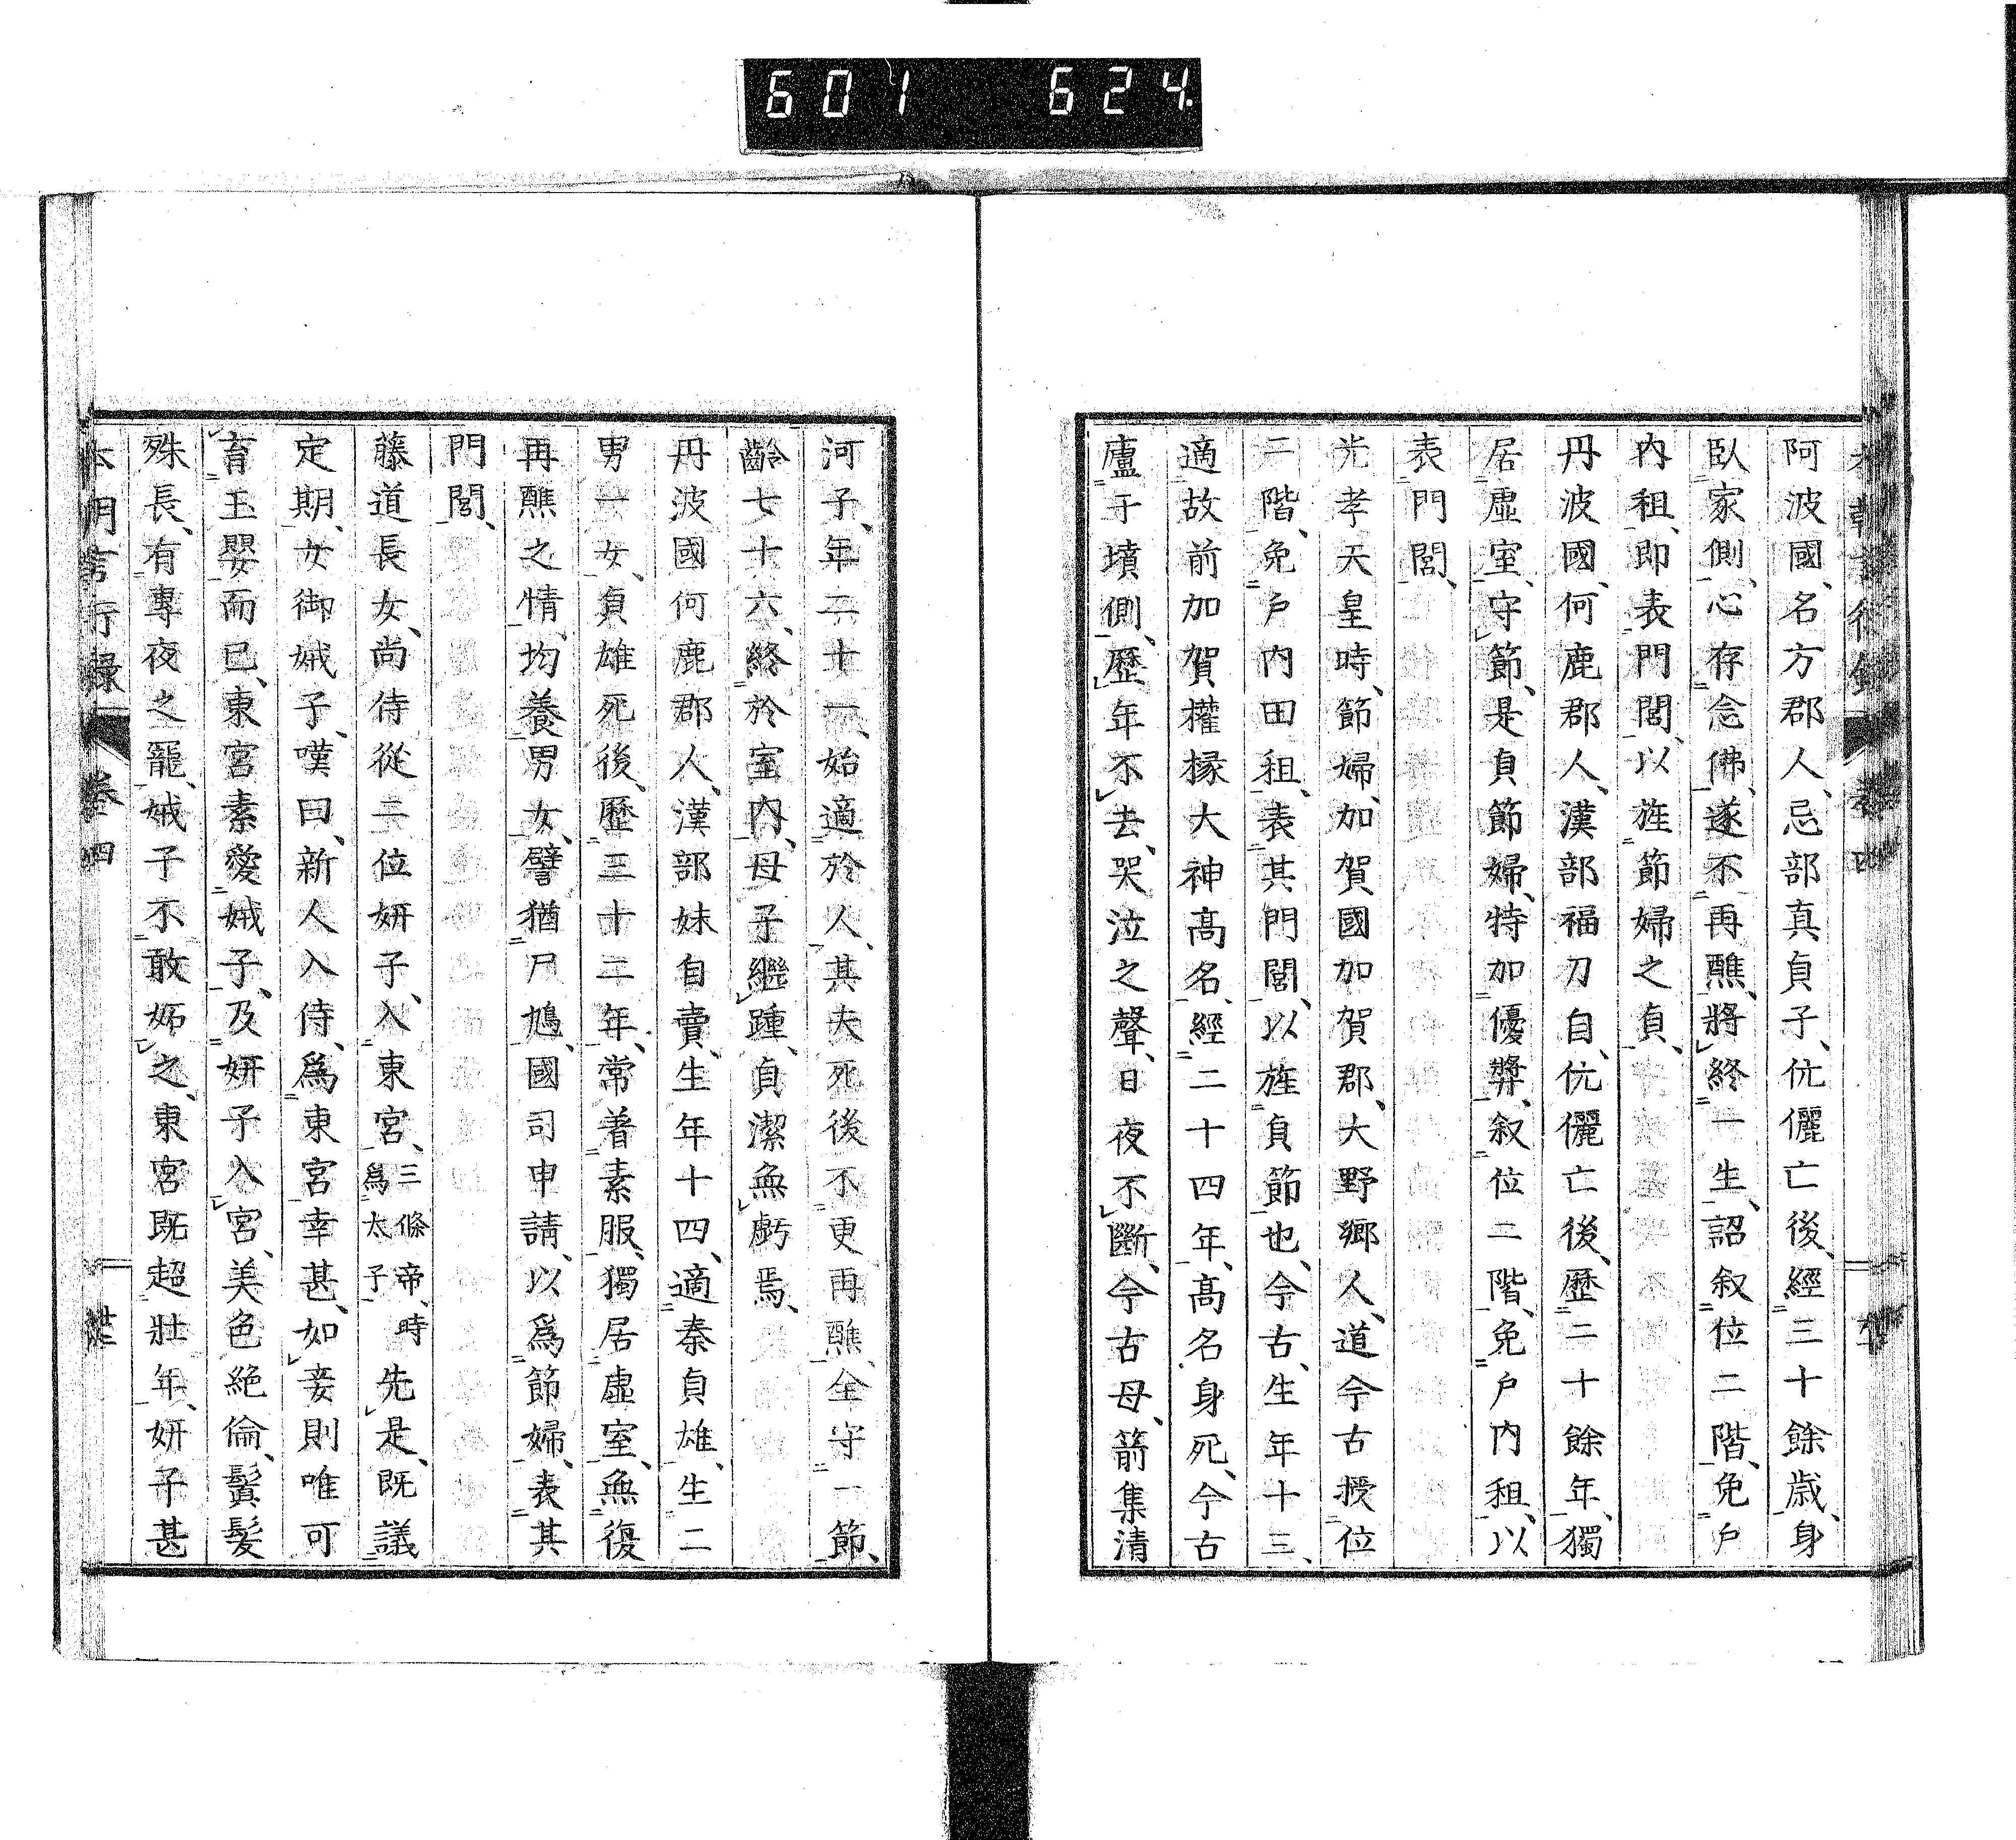 601 624
阿波國、名方郡人、忌部真貞子、伉儷亡後、經三十餘歳、身
臥家側、心存念佛、遂不再醮、將終一生、詔叙位二階、免户
内租、即表門閭、以旌節婦之貞、
丹波國、何鹿郡人、漢部福刀自、伉儷亡後、歷二十餘年、獨
居虛室、守節、是貞節婦、特加優奬、叙位二階、免户内租、以
表門閭、
光孝天皇時、節婦、加賀國加賀郡、大野郷人、道今古授位
二階、免户内田租、表其門閭、以旌貞節也、今古、生年十三、
適故前加賀權掾大神高名、經二十四年、高名身死、今古
廬于墳側、歷年不去、哭泣之聲、日夜不斷、今古母、箭集清
河子、年二十一、始適於人、其夫死後不更再醮、全守一節、
齡七十六、終於室内、母子繼踵、貞潔無虧焉、
丹波國何鹿郡人、漢部妹自賣、生年十四、適秦貞雄、生二
男一女、貞雄死後、歷三十二年、常着素服、獨居虛室、無復
再醮之情、均養男女、譬猶尸鳩、國司申請、以爲節婦、表其
門閭、
藤道長女、尚侍從二位妍子、入東宮、三條帝、時爲太子先是、既議
定期、女御娍子、嘆曰、新人入侍、爲東宮幸甚、如妾則唯可
育王嬰而已、東宮素愛娍子、及妍子入宮、美色絶倫、鬒髮
殊長、有專夜之寵、娍子不敢妬之、東宮既超壯年、妍子甚
本朝言行錄 卷四